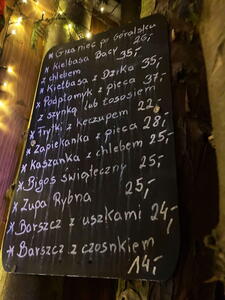 * Grzaniec po Góralsku 26,-
* Kiełbasa Bacy 35,-
z chlebem
* Kiełbasa z Dzika 35,-
* Podpłomyk z pieca 37,-
z szynką lub łososiem
* Frytki z keczupem 22,-
* Zapiekanka z pieca 28,-
* Kaszanka z chlebem 25,-
* Bigos świąteczny 25,-
* Zupa Rybna 25,-
* Barszcz z uszkami 24,-
* Barszcz z czosnkiem
14,-